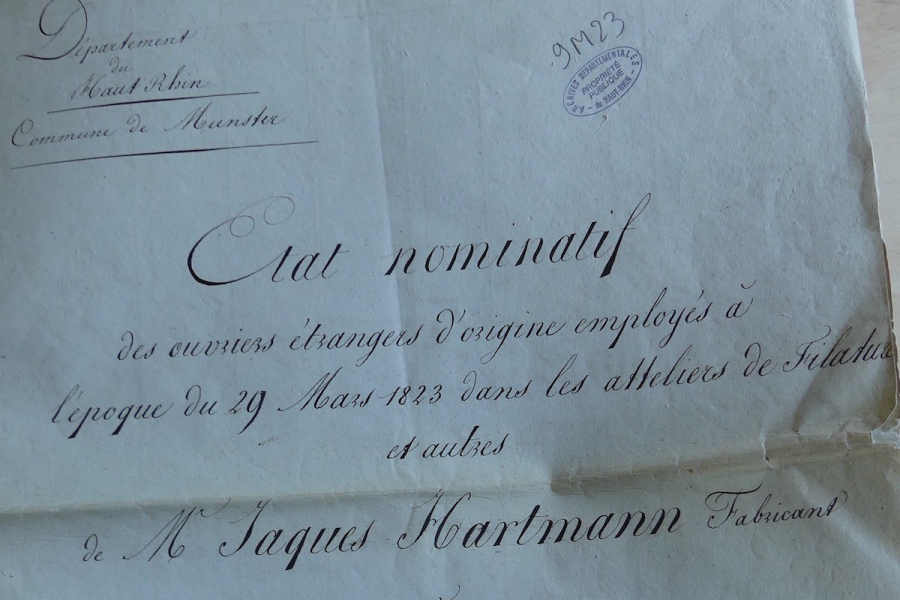 Département
du
Haut Rhin
Commune de Munster
9M23
ARCHIVES DÉPARTEMENTALES
PROPRIÉTÉ
PUBLIQUE
du HAUT-RHIN
Etat nominatif
des ouvriers étrangers d'origine employés à
l'époque du 29 Mars 1823 dans les atteliers de Filature
et autres
de Mr Jaques Hartmann Fabricant